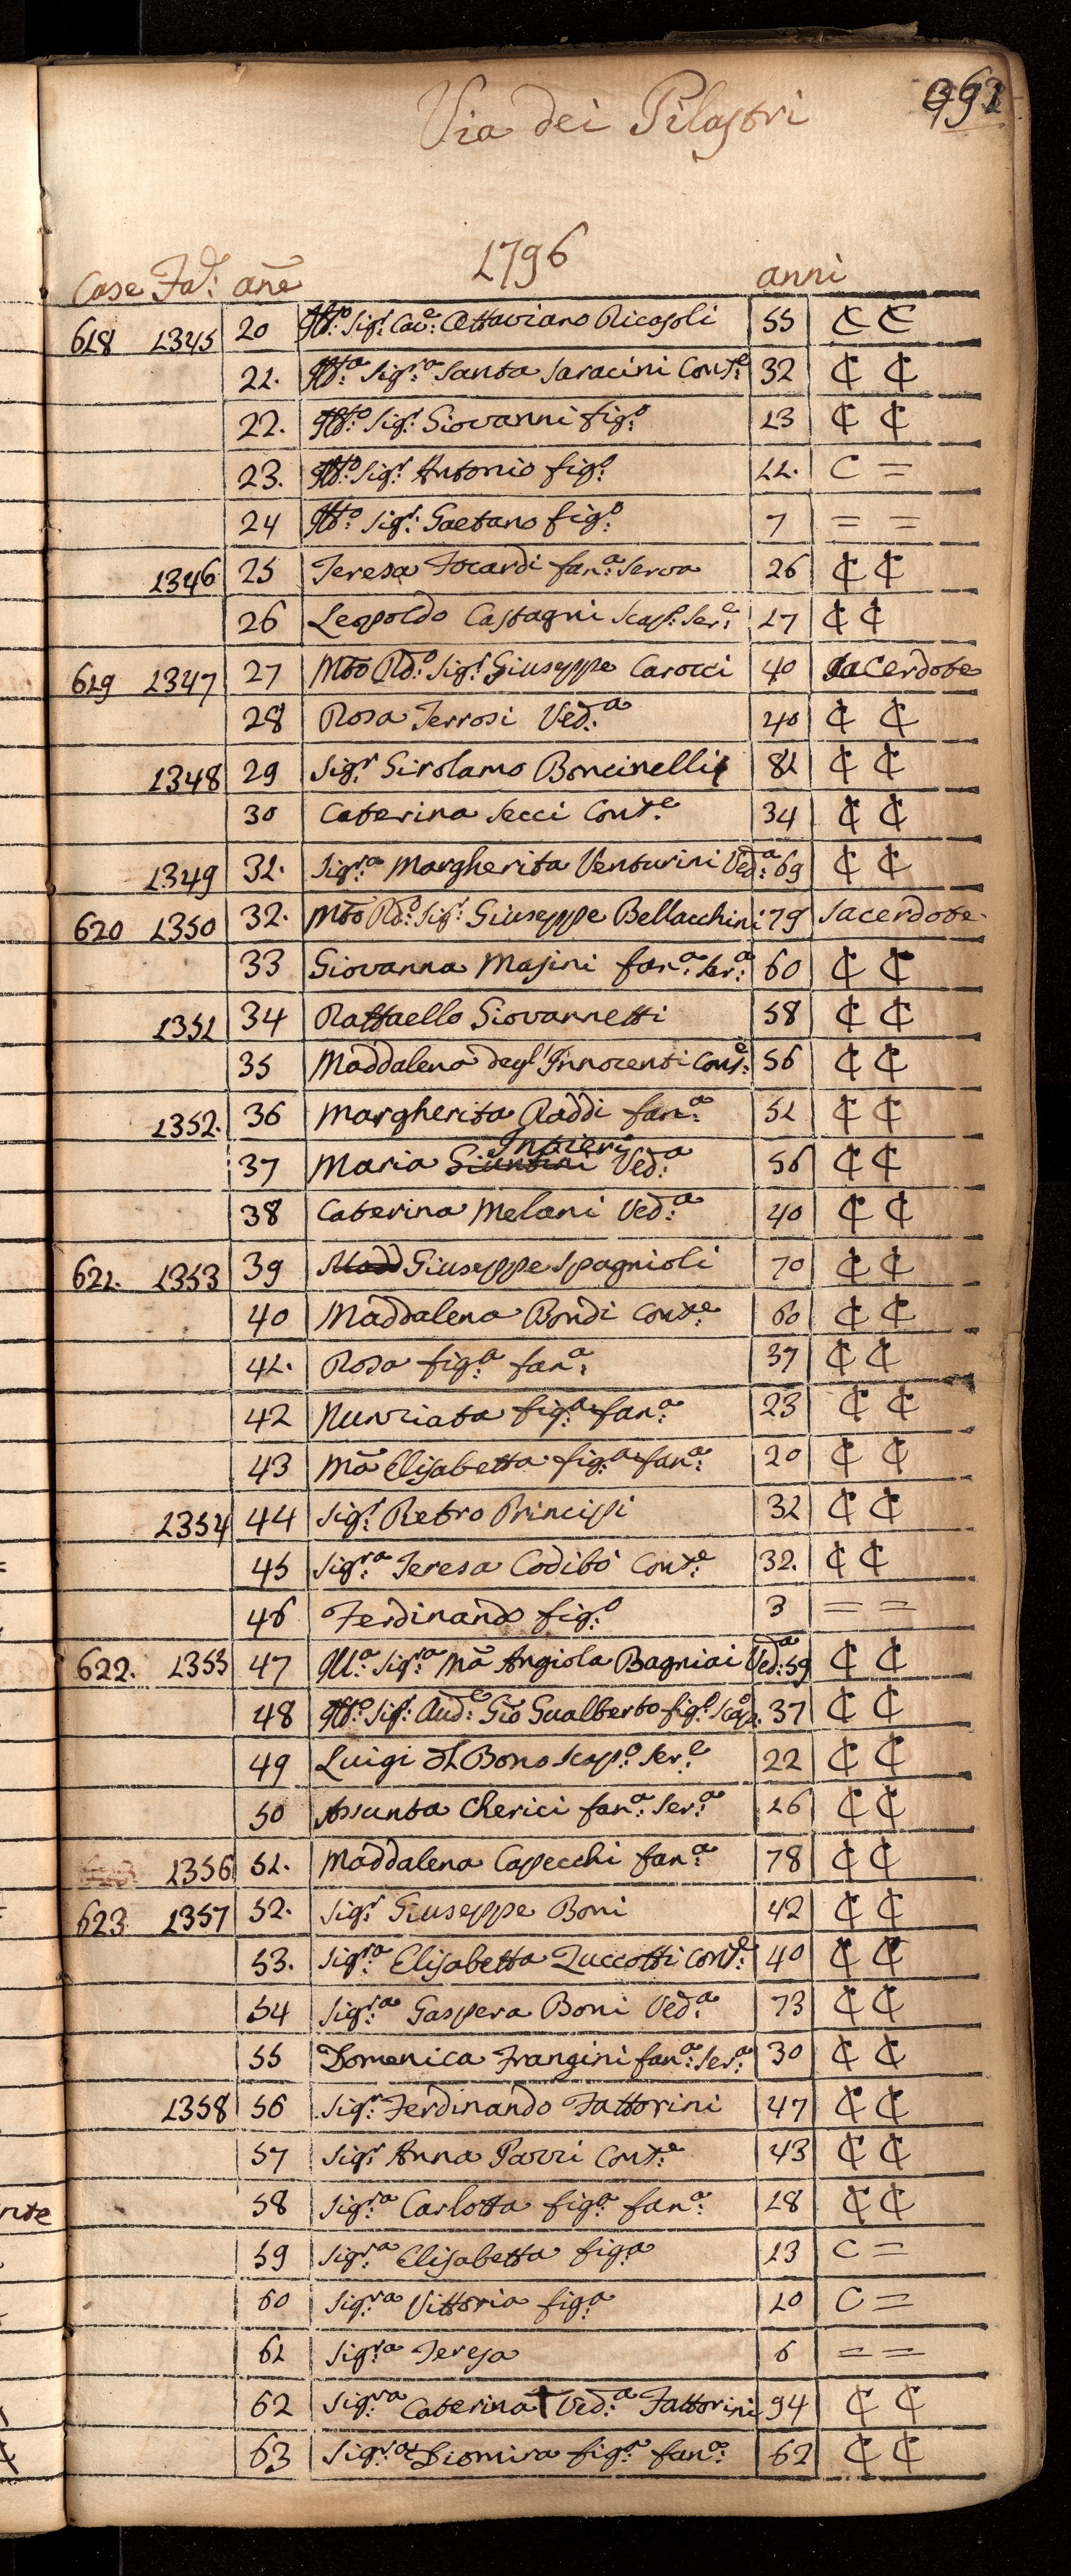 Via dei Pilastri
1796
Case Fa.e ane anni
618 1345 20 Ill.o Sig.r Cav.e Ottaviano Ricasoli 55 ₵ ₵
21. Ill.a Sig.ra Santa Saracini Cont.e 32 ₵ ₵
22. Ill.o Sig.r Giovanni fig.o 13 ₵ ₵
23. Ill.o Sig.r Antonio fig.o 11. C =
24 Ill.o Sig.r Gaetano fig.o 7 = =
1346 25 Teresa Focardi fan.a Serva 26 ₵ ₵
26 Leopoldo Castagni Scap.o Ser.e 17 ₵ ₵
619 1347 27 Mto Rd.o Sig.r Giuseppe Carocci 40 Sacerdote
28 Rosa Terrosi Ved.a 40 ₵ ₵
1348 29 Sig.r Girolamo Boncinelli 81 ₵ ₵
30 Caterina Secci Cont.e 34 ₵ ₵
1349 31. Sig.ra Margherita Venturini Ved.a 69 ₵ ₵
620 1350 32. Mto Rd.o Sig.r Giuseppe Bellacchini 79 Sacerdote
33 Giovanna Masini fan.a Ser.a 60 ₵ ₵
1351 34 Raffaello Giovannetti 58 ₵ ₵
35 Maddalena degl'Innocenti Cont.e 56 ₵ ₵
1352. 36 Margherita Raddi fan.a 51 ₵ ₵
Inpieri
37 Maria Giuntini Ved.a 56 ₵ ₵
38 Caterina Melani Ved.a 40 ₵ ₵
621. 1353 39 Madd Giuseppe Spagnioli 70 ₵ ₵
40 Maddalena Bondi Cont.e 60 ₵ ₵
41. Rosa fig.a fan.a 37 ₵ ₵
42 Nunziata fig.a fan.a 23 ₵ ₵
43 Ma Elisabetta fig.a fan.a 20 ₵ ₵
1354 44 Sig.r Pietro Principi 32 ₵ ₵
45 Sig.ra Teresa Codibò Cont.e 32. ₵ ₵
46 Ferdinando fig.o 3 = =
622. 1355 47 Ill.a Sig.ra Ma Angiola Bagniai Ved.a 59 ₵ ₵
48 Ill.o Sig.r Aud.e Gio Gualberto fig.o Scap.o 37 ₵ ₵
49 Luigi Del Bono Scap.o Ser.e 22 ₵ ₵
50 Assunta Cherici fan.a Ser.a 26 ₵ ₵
1356 51. Maddalena Capecchi fan.a 78 ₵ ₵
623 1357 52. Sig.r Giuseppe Boni 42 ₵ ₵
53. Sig.ra Elisabetta Zuccotti Cont.e 40 ₵ ₵
54 Sig.ra Gaspera Boni Ved.a 73 ₵ ₵
55 Domenica Frangini fan.a Ser.a 30 ₵ ₵
1358 56 Sig.r Ferdinando Fattorini 47 ₵ ₵
57 Sig.r Anna Pazzi Cont.e 43 ₵ ₵
58 Sig.ra Carlotta fig.a fan.a 18 ₵ ₵
59 Sig.ra Elisabetta fig.a 13 C =
60 Sig.ra Vittoria fig.a 10 C =
61 Sig.ra Teresa 6 = =
62 Sig.ra Caterina Ved.a Fattorini 94 ₵ ₵
63 Sig.ra Diomira fig.a fan.a 62 ₵ ₵